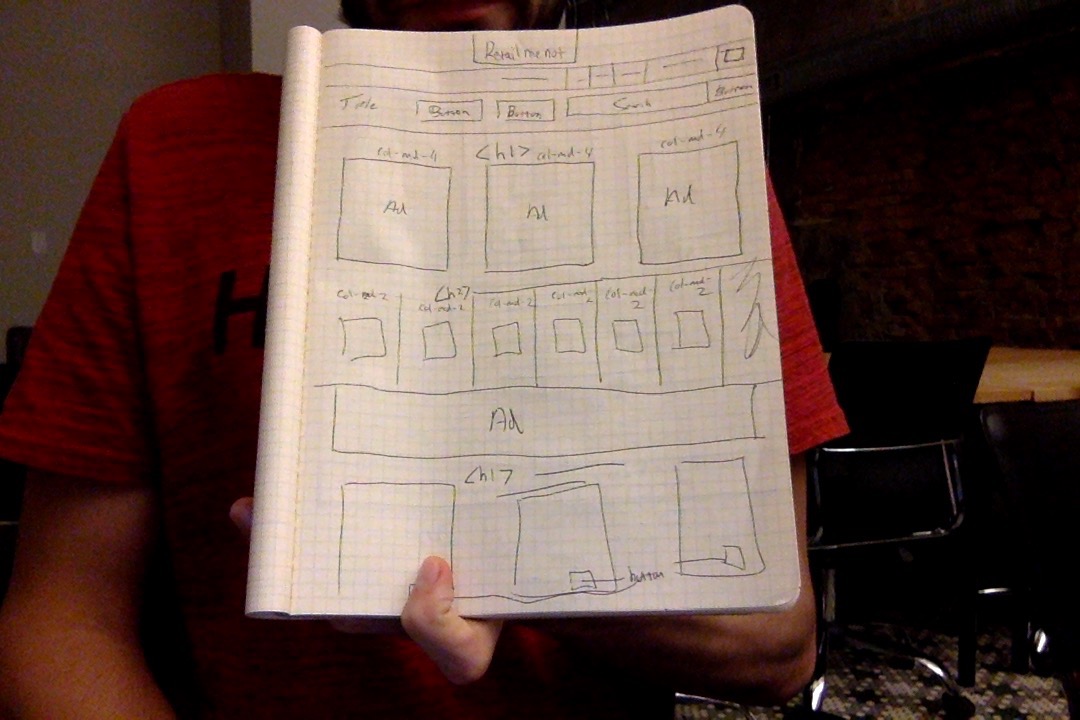 Retailmenot
Title Button Button Search Button
col-md-4 <h1> col-md-4 col-md-4
Ad Ad Ad
col-md-2 <h2> col-md-2 col-md-2 col-md-2 col-md-2 col-md-2
Ad
<h1>
button
H